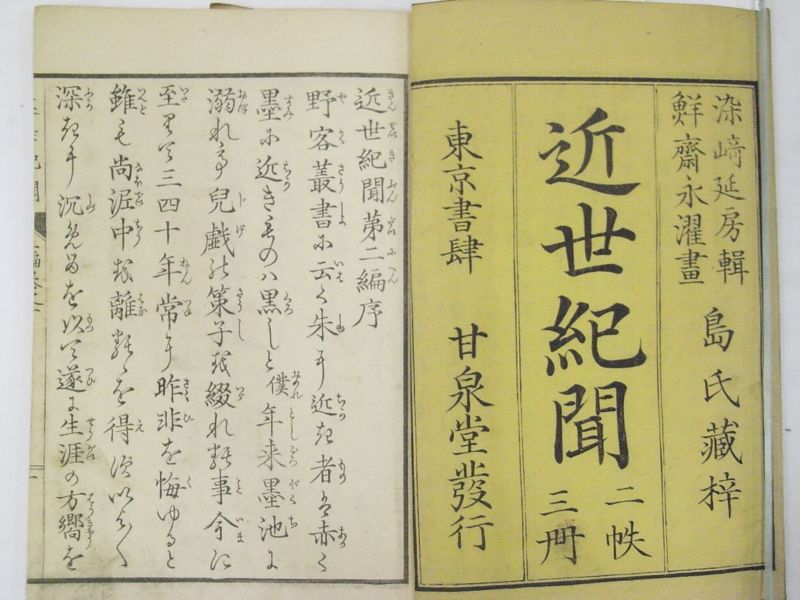 染﨑延房輯
鮮齋永濯畫
島氏藏梓
近世紀聞
二帙
三冊
東京書肆
甘泉堂發行
近世紀聞第二編序
野客叢書に云く朱に近き者は赤く
墨に近きものハ黒しと僕年来墨池に
溺れて兒戯の策子を綴れる事今に
至りて三四十年常に昨非を悔ゆると
雖も尚泥中を離るゝを得ず以て
深きに沉
を以て遂に生涯の方嚮を